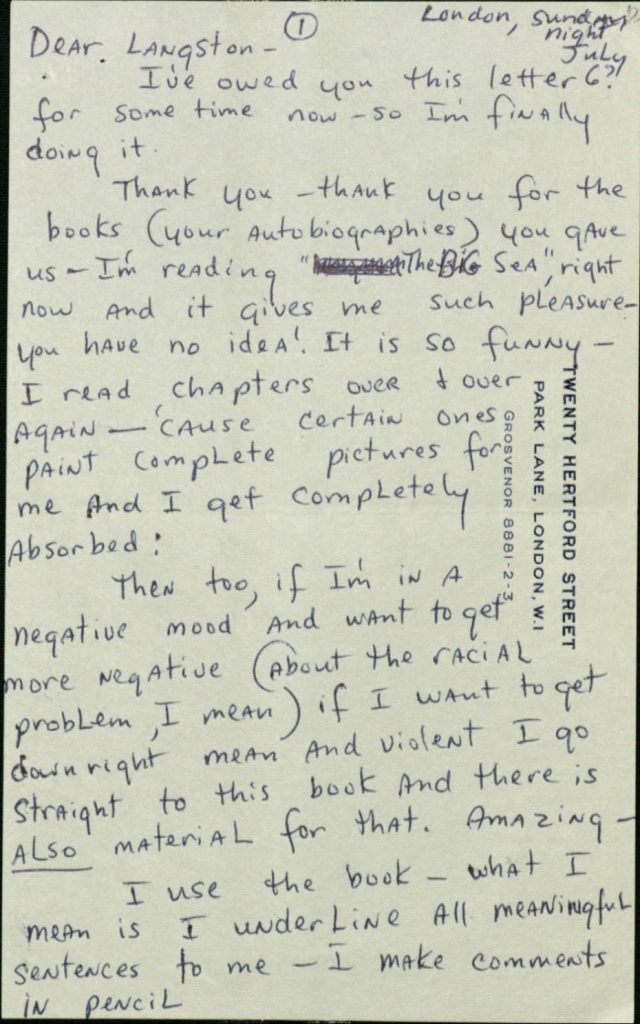 ①
London, Sunday
night
July
6?
Dear Langston -
I've owed you this letter
for some time now - so I'm finally
doing it.
Thank you - thank you for the
books (your autobiographies) you gave
us - I'm reading "The Big Sea", right
now and it gives me such pleasure -
you have no idea! It is so funny -
I read chapters over & over
again - 'cause certain ones
paint complete pictures for
me and I get completely
absorbed:
Then too, if I'm in a
negative mood and want to get
more negative (about the racial
problem, I mean) if I want to get
downright mean and violent I go
straight to this book and there is
also material for that. Amazing -
I use the book - what I
mean is I underline all meaningful
sentences to me - I make comments
in pencil
TWENTY HERTFORD STREET
PARK LANE, LONDON, W.1
GROSVENOR 8881-2-3